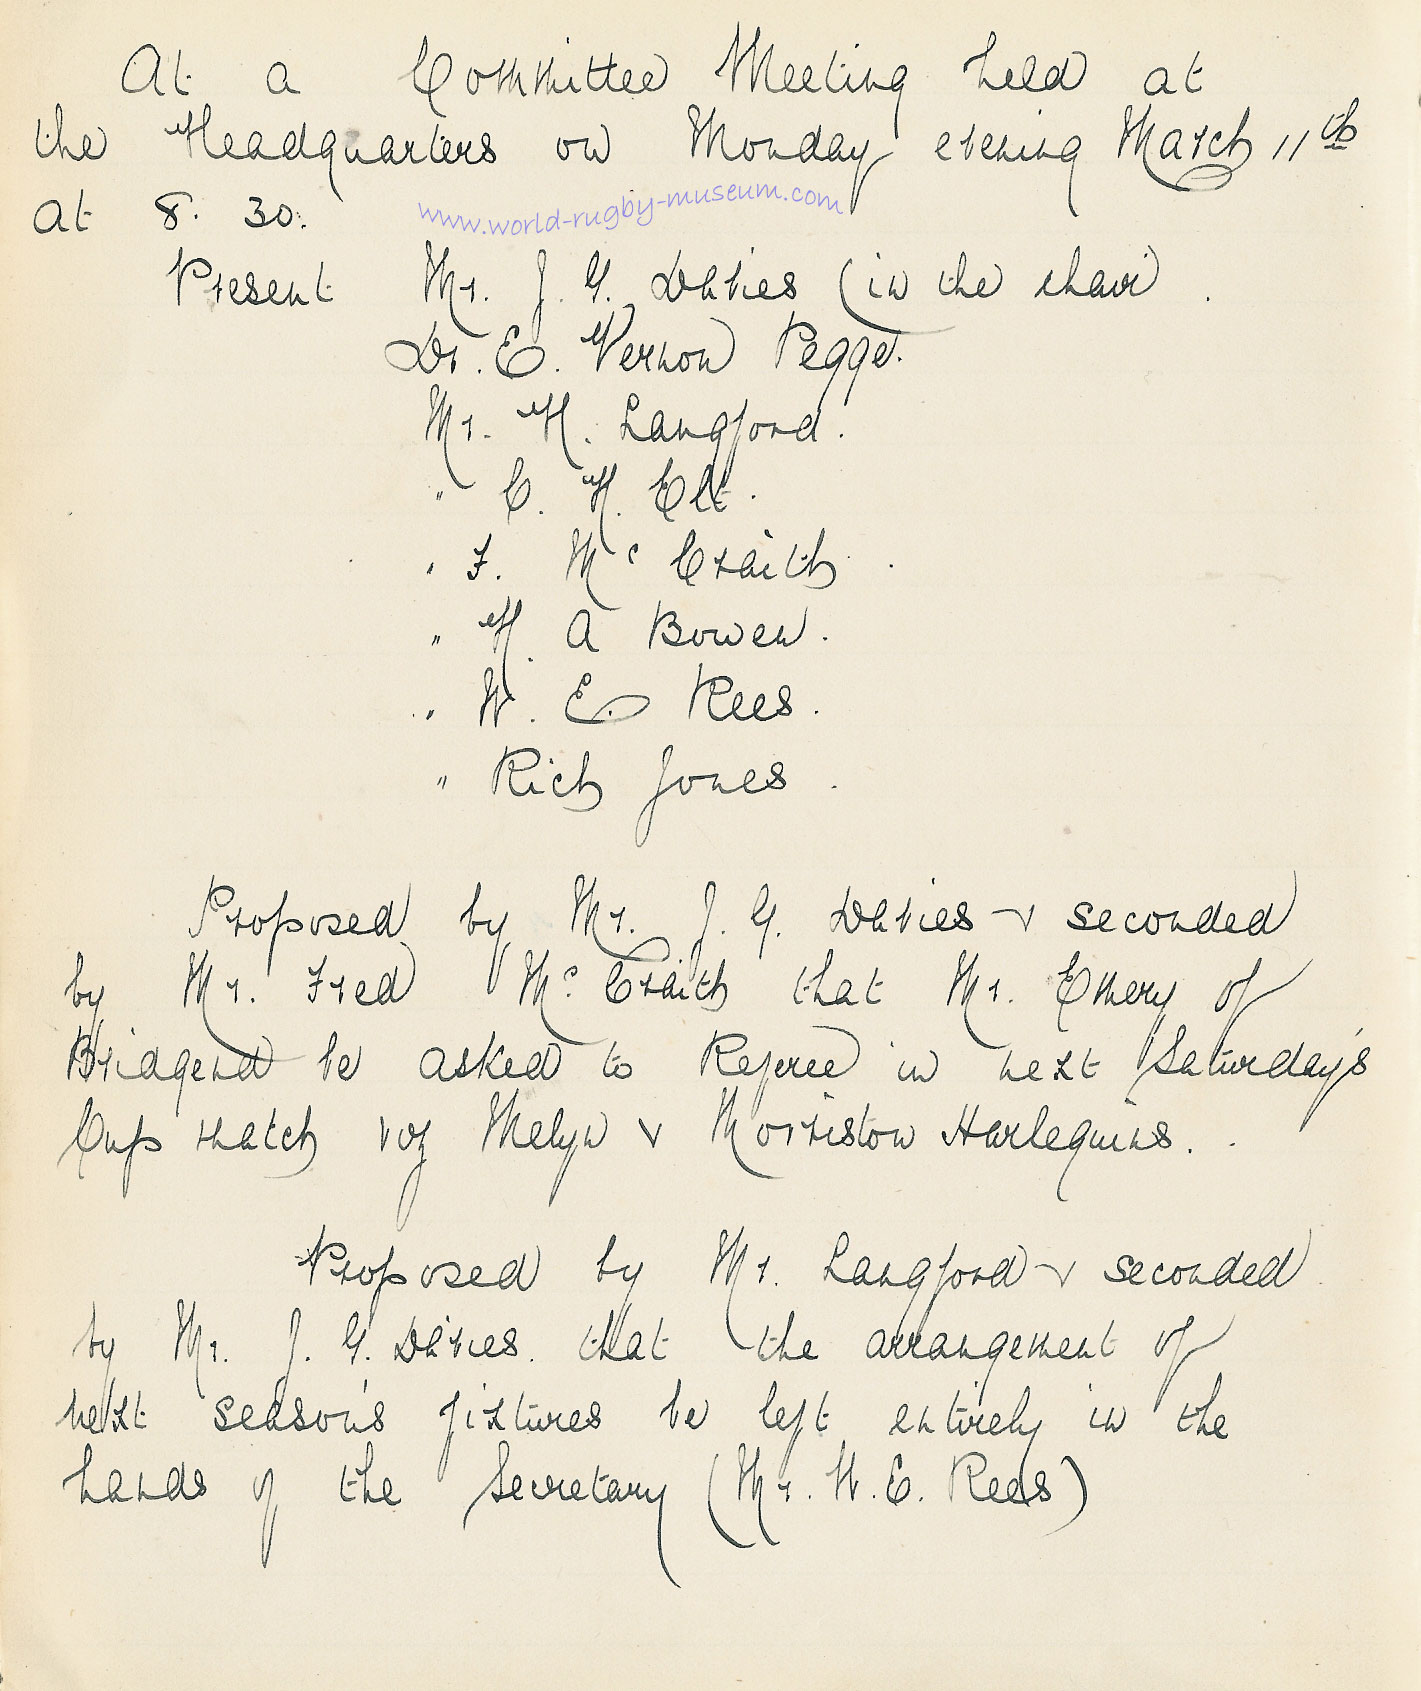 At a Committee Meeting held at
the Headquarters on Monday evening March 11th
at 8. 30.
www.world-rugby-museum.com
Present Mr. J. G. Davies (in the chair
Dr. E. Vernon Pegge.
Mr. H. Langford.
" C. H. Elt.
" F. Mc Craith.
" H. A Bowen.
" W. E. Rees.
" Rich Jones.
Proposed by Mr. J. G. Davies & seconded
by Mr. Fred Mc Craith that Mr. Emery of
Bridgend be asked to Referee in next Saturday's
Cup match voz Melyn v Morriston Harlequins.
Proposed by Mr. Langford & seconded
by Mr. J. G. Davies. that the arrangement of
next season's fixtures be left entirely in the
hands of the Secretary (Mr. W. E. Rees)